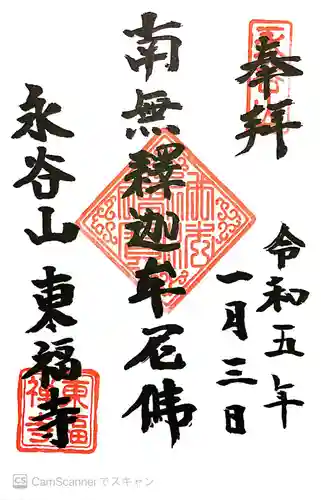 奉拝
令和五年
一月三日
南無釋迦牟尼佛
永谷山 東福寺
東福禅寺
CamScannerでスキャン